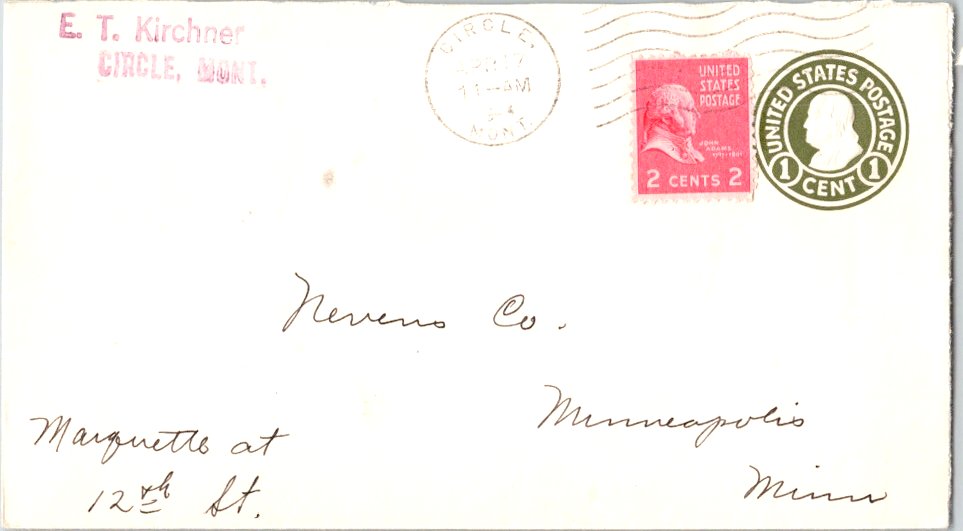 E. T. Kirchner
CIRCLE, MONT.
CIRCLE,
APR 17
11-AM
MONT.
UNITED
STATES
POSTAGE
JOHN
ADAMS
1797-1801
2 CENTS 2
UNITED STATES POSTAGE
1 CENT 1
Nevens Co.
Minneapolis
Minn
Marquette at
12th St.